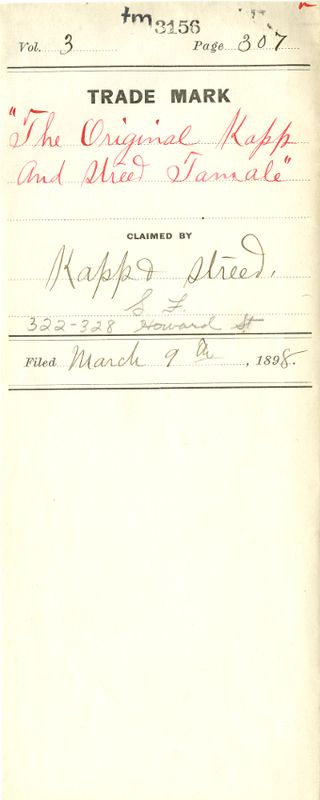 tm 3156
Vol. 3 Page 307
TRADE MARK
"The Original Kapp
And Streed Tamale"
CLAIMED BY
Kapp & Streed.
S F.
322-328 Howard St
Filed March 9th, 1898.